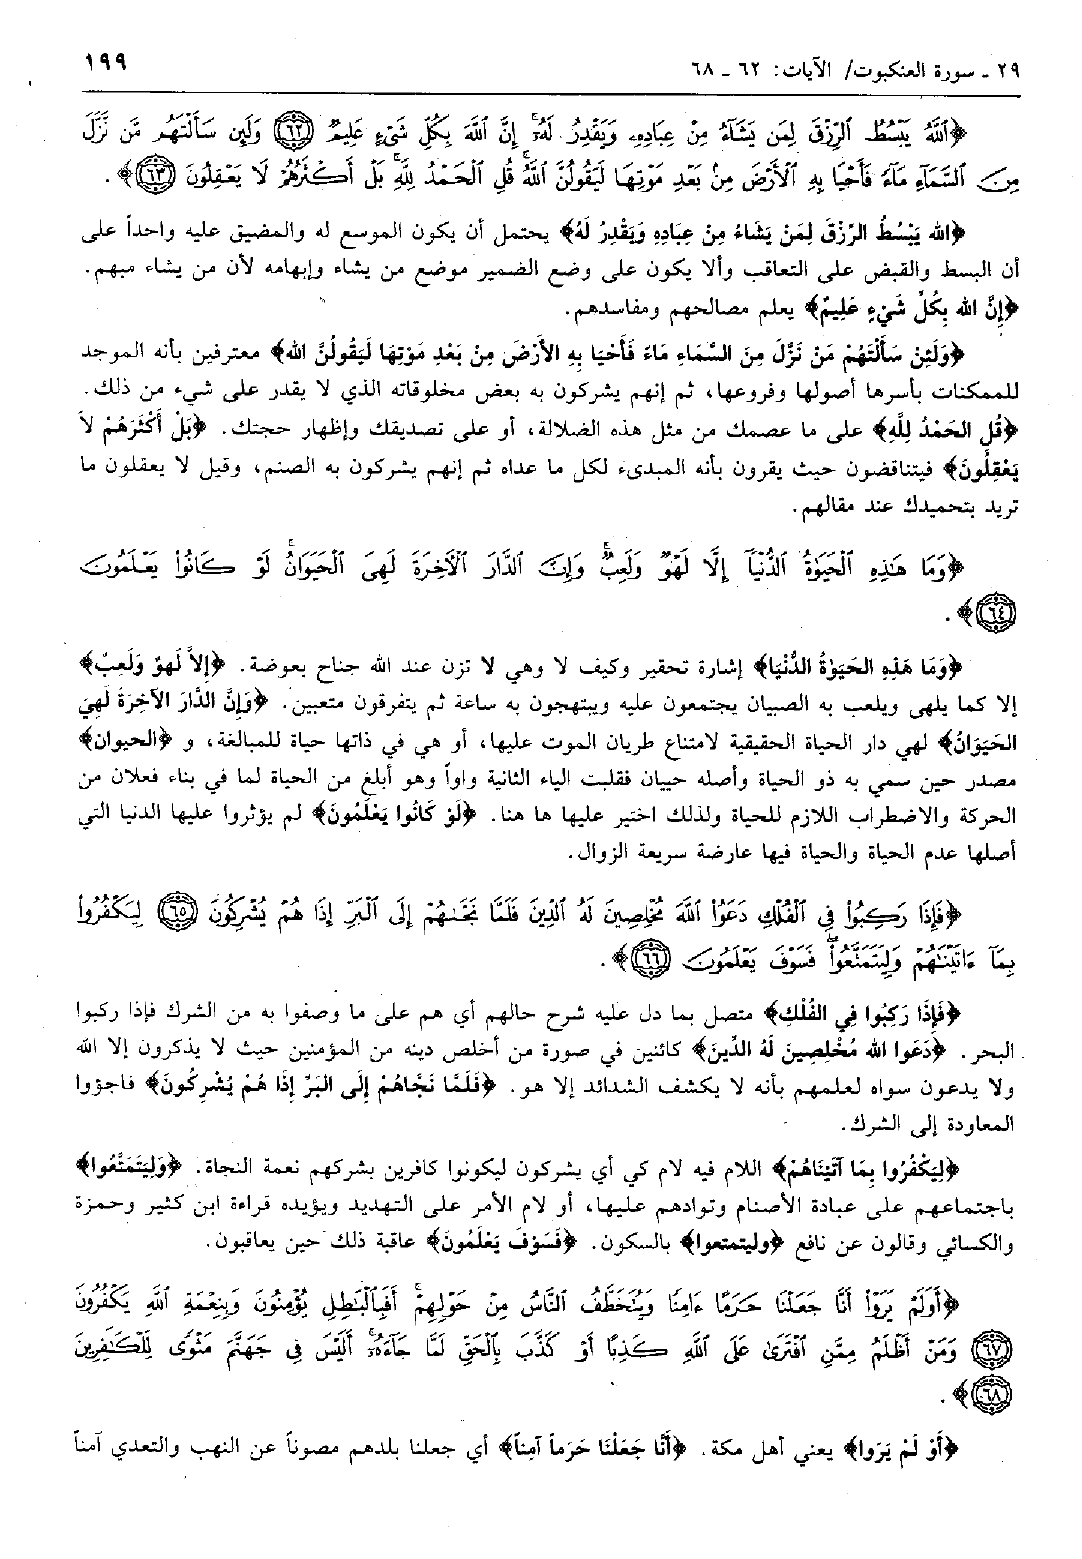 ٢٩ ـ سورة العنكبوت/ الآيات: ٦٢ ـ ٦٨
١٩٩
﴿ٱللَّهُ يَبْسُطُ ٱلرِّزْقَ لِمَن يَشَآءُ مِنْ عِبَادِهِۦ وَيَقْدِرُ لَهُۥٓ ۚ إِنَّ ٱللَّهَ بِكُلِّ شَىْءٍ عَلِيمٌ ۝٦٢ وَلَئِن سَأَلْتَهُم مَّن نَّزَّلَ
مِنَ ٱلسَّمَآءِ مَآءً فَأَحْيَا بِهِ ٱلْأَرْضَ مِنۢ بَعْدِ مَوْتِهَا لَيَقُولُنَّ ٱللَّهُ ۚ قُلِ ٱلْحَمْدُ لِلَّهِ ۚ بَلْ أَكْثَرُهُمْ لَا يَعْقِلُونَ ۝٦٣﴾.
﴿الله يَبْسُطُ الرِّزْقَ لِمَنْ يَشَاءُ مِنْ عِبَادِهِ وَيَقْدِرُ لَهُ﴾ يحتمل أن يكون الموسع له والمضيق عليه واحداً على
أن البسط والقبض على التعاقب وألا يكون على وضع الضمير موضع من يشاء وإبهامه لأن من يشاء مبهم.
﴿إِنَّ الله بِكُلِّ شَيْءٍ عَلِيمٌ﴾ يعلم مصالحهم ومفاسدهم.
﴿وَلَئِنْ سَأَلْتَهُمْ مَنْ نَزَّلَ مِنَ السَّمَاءِ مَاءً فَأَحْيَا بِهِ الأَرْضَ مِنْ بَعْدِ مَوْتِهَا لَيَقُولُنَّ الله﴾ معترفين بأنه الموجد
للممكنات بأسرها أصولها وفروعها، ثم إنهم يشركون به بعض مخلوقاته الذي لا يقدر على شيء من ذلك.
﴿قُلِ الحَمْدُ لِلَّهِ﴾ على ما عصمك من مثل هذه الضلالة، أو على تصديقك وإظهار حجتك. ﴿بَلْ أَكْثَرَهُمْ لاَ
يَعْقِلُونَ﴾ فيتناقضون حيث يقرون بأنه المبدىء لكل ما عداه ثم إنهم يشركون به الصنم، وقيل لا يعقلون ما
تريد بتحميدك عند مقالهم.
﴿وَمَا هَٰذِهِ ٱلْحَيَوٰةُ ٱلدُّنْيَآ إِلَّا لَهْوٌ وَلَعِبٌ ۚ وَإِنَّ ٱلدَّارَ ٱلْأَخِرَةَ لَهِىَ ٱلْحَيَوَانُ ۚ لَوْ كَانُوا۟ يَعْلَمُونَ
۝٦٤﴾.
﴿وَمَا هَذِهِ الحَيَوٰةُ الدُّنْيَا﴾ إشارة تحقير وكيف لا وهي لا تزن عند الله جناح بعوضة. ﴿إِلاَّ لَهوٌ وَلَعِبٌ﴾
إلا كما يلهى ويلعب به الصبيان يجتمعون عليه ويبتهجون به ساعة ثم يتفرقون متعبين. ﴿وَإِنَّ الدَّارَ الآخِرَةَ لَهِيَ
الحَيَوَانُ﴾ لهي دار الحياة الحقيقية لامتناع طريان الموت عليها، أو هي في ذاتها حياة للمبالغة، و ﴿الحيوان﴾
مصدر حين سمي به ذو الحياة وأصله حييان فقلبت الياء الثانية واواً وهو أبلغ من الحياة لما في بناء فعلان من
الحركة والاضطراب اللازم للحياة ولذلك اختير عليها ها هنا. ﴿لَوْ كَانُوا يَعْلَمُونَ﴾ لم يؤثروا عليها الدنيا التي
أصلها عدم الحياة والحياة فيها عارضة سريعة الزوال.
﴿فَإِذَا رَكِبُوا۟ فِى ٱلْفُلْكِ دَعَوُا۟ ٱللَّهَ مُخْلِصِينَ لَهُ ٱلدِّينَ فَلَمَّا نَجَّىٰهُمْ إِلَى ٱلْبَرِّ إِذَا هُمْ يُشْرِكُونَ ۝٦٥ لِيَكْفُرُوا۟
بِمَآ ءَاتَيْنَٰهُمْ وَلِيَتَمَتَّعُوا۟ ۖ فَسَوْفَ يَعْلَمُونَ ۝٦٦﴾.
﴿فَإِذَا رَكِبُوا فِي الفُلْكِ﴾ متصل بما دل عليه شرح حالهم أي هم على ما وصفوا به من الشرك فإذا ركبوا
البحر. ﴿دَعَوا الله مُخْلِصِينَ لَهُ الدِّينَ﴾ كائنين في صورة من أخلص دينه من المؤمنين حيث لا يذكرون إلا الله
ولا يدعون سواه لعلمهم بأنه لا يكشف الشدائد إلا هو. ﴿فَلَمَّا نَجَّاهُمْ إِلَى البَرِّ إِذَا هُمْ يُشْرِكُونَ﴾ فاجؤوا
المعاودة إلى الشرك.
﴿لِيَكْفُرُوا بِمَا آتَيْنَاهُمْ﴾ اللام فيه لام كي أي يشركون ليكونوا كافرين بشركهم نعمة النجاة. ﴿وَلِيَتَمَتَّعُوا﴾
باجتماعهم على عبادة الأصنام وتوادهم عليها، أو لام الأمر على التهديد ويؤيده قراءة ابن كثير وحمزة
والكسائي وقالون عن نافع ﴿وليتمتعوا﴾ بالسكون. ﴿فَسَوْفَ يَعْلَمُونَ﴾ عاقبة ذلك حين يعاقبون.
﴿أَوَلَمْ يَرَوْا۟ أَنَّا جَعَلْنَا حَرَمًا ءَامِنًا وَيُتَخَطَّفُ ٱلنَّاسُ مِنْ حَوْلِهِمْ ۚ أَفَبِٱلْبَٰطِلِ يُؤْمِنُونَ وَبِنِعْمَةِ ٱللَّهِ يَكْفُرُونَ
۝٦٧ وَمَنْ أَظْلَمُ مِمَّنِ ٱفْتَرَىٰ عَلَى ٱللَّهِ كَذِبًا أَوْ كَذَّبَ بِٱلْحَقِّ لَمَّا جَآءَهُۥٓ ۚ أَلَيْسَ فِى جَهَنَّمَ مَثْوًى لِّلْكَٰفِرِينَ
۝٦٨﴾.
﴿أَوَ لَمْ يَرَوا﴾ يعني أهل مكة. ﴿أَنَّا جَعَلْنَا حَرَماً آمِناً﴾ أي جعلنا بلدهم مصوناً عن النهب والتعدي آمناً